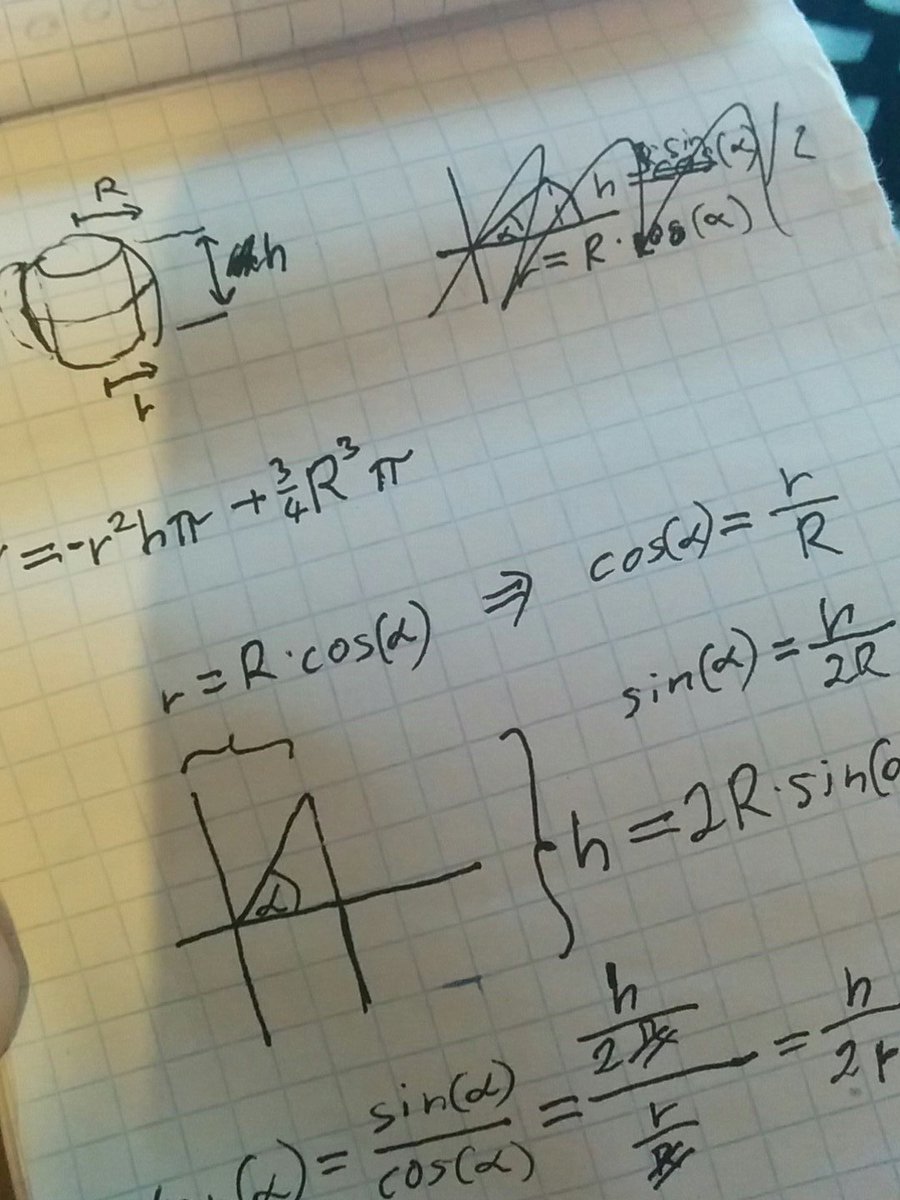 R
h
r
h = sin(α) / 2
r = R · cos(α)
= -r²hπ + ¾R³π
r = R·cos(α) ⇒ cos(α) = r/R
sin(α) = h/2R
α
h = 2R·sin(
(α) = sin(α)/cos(α) = (h/2R)/(r/R) = h/2r